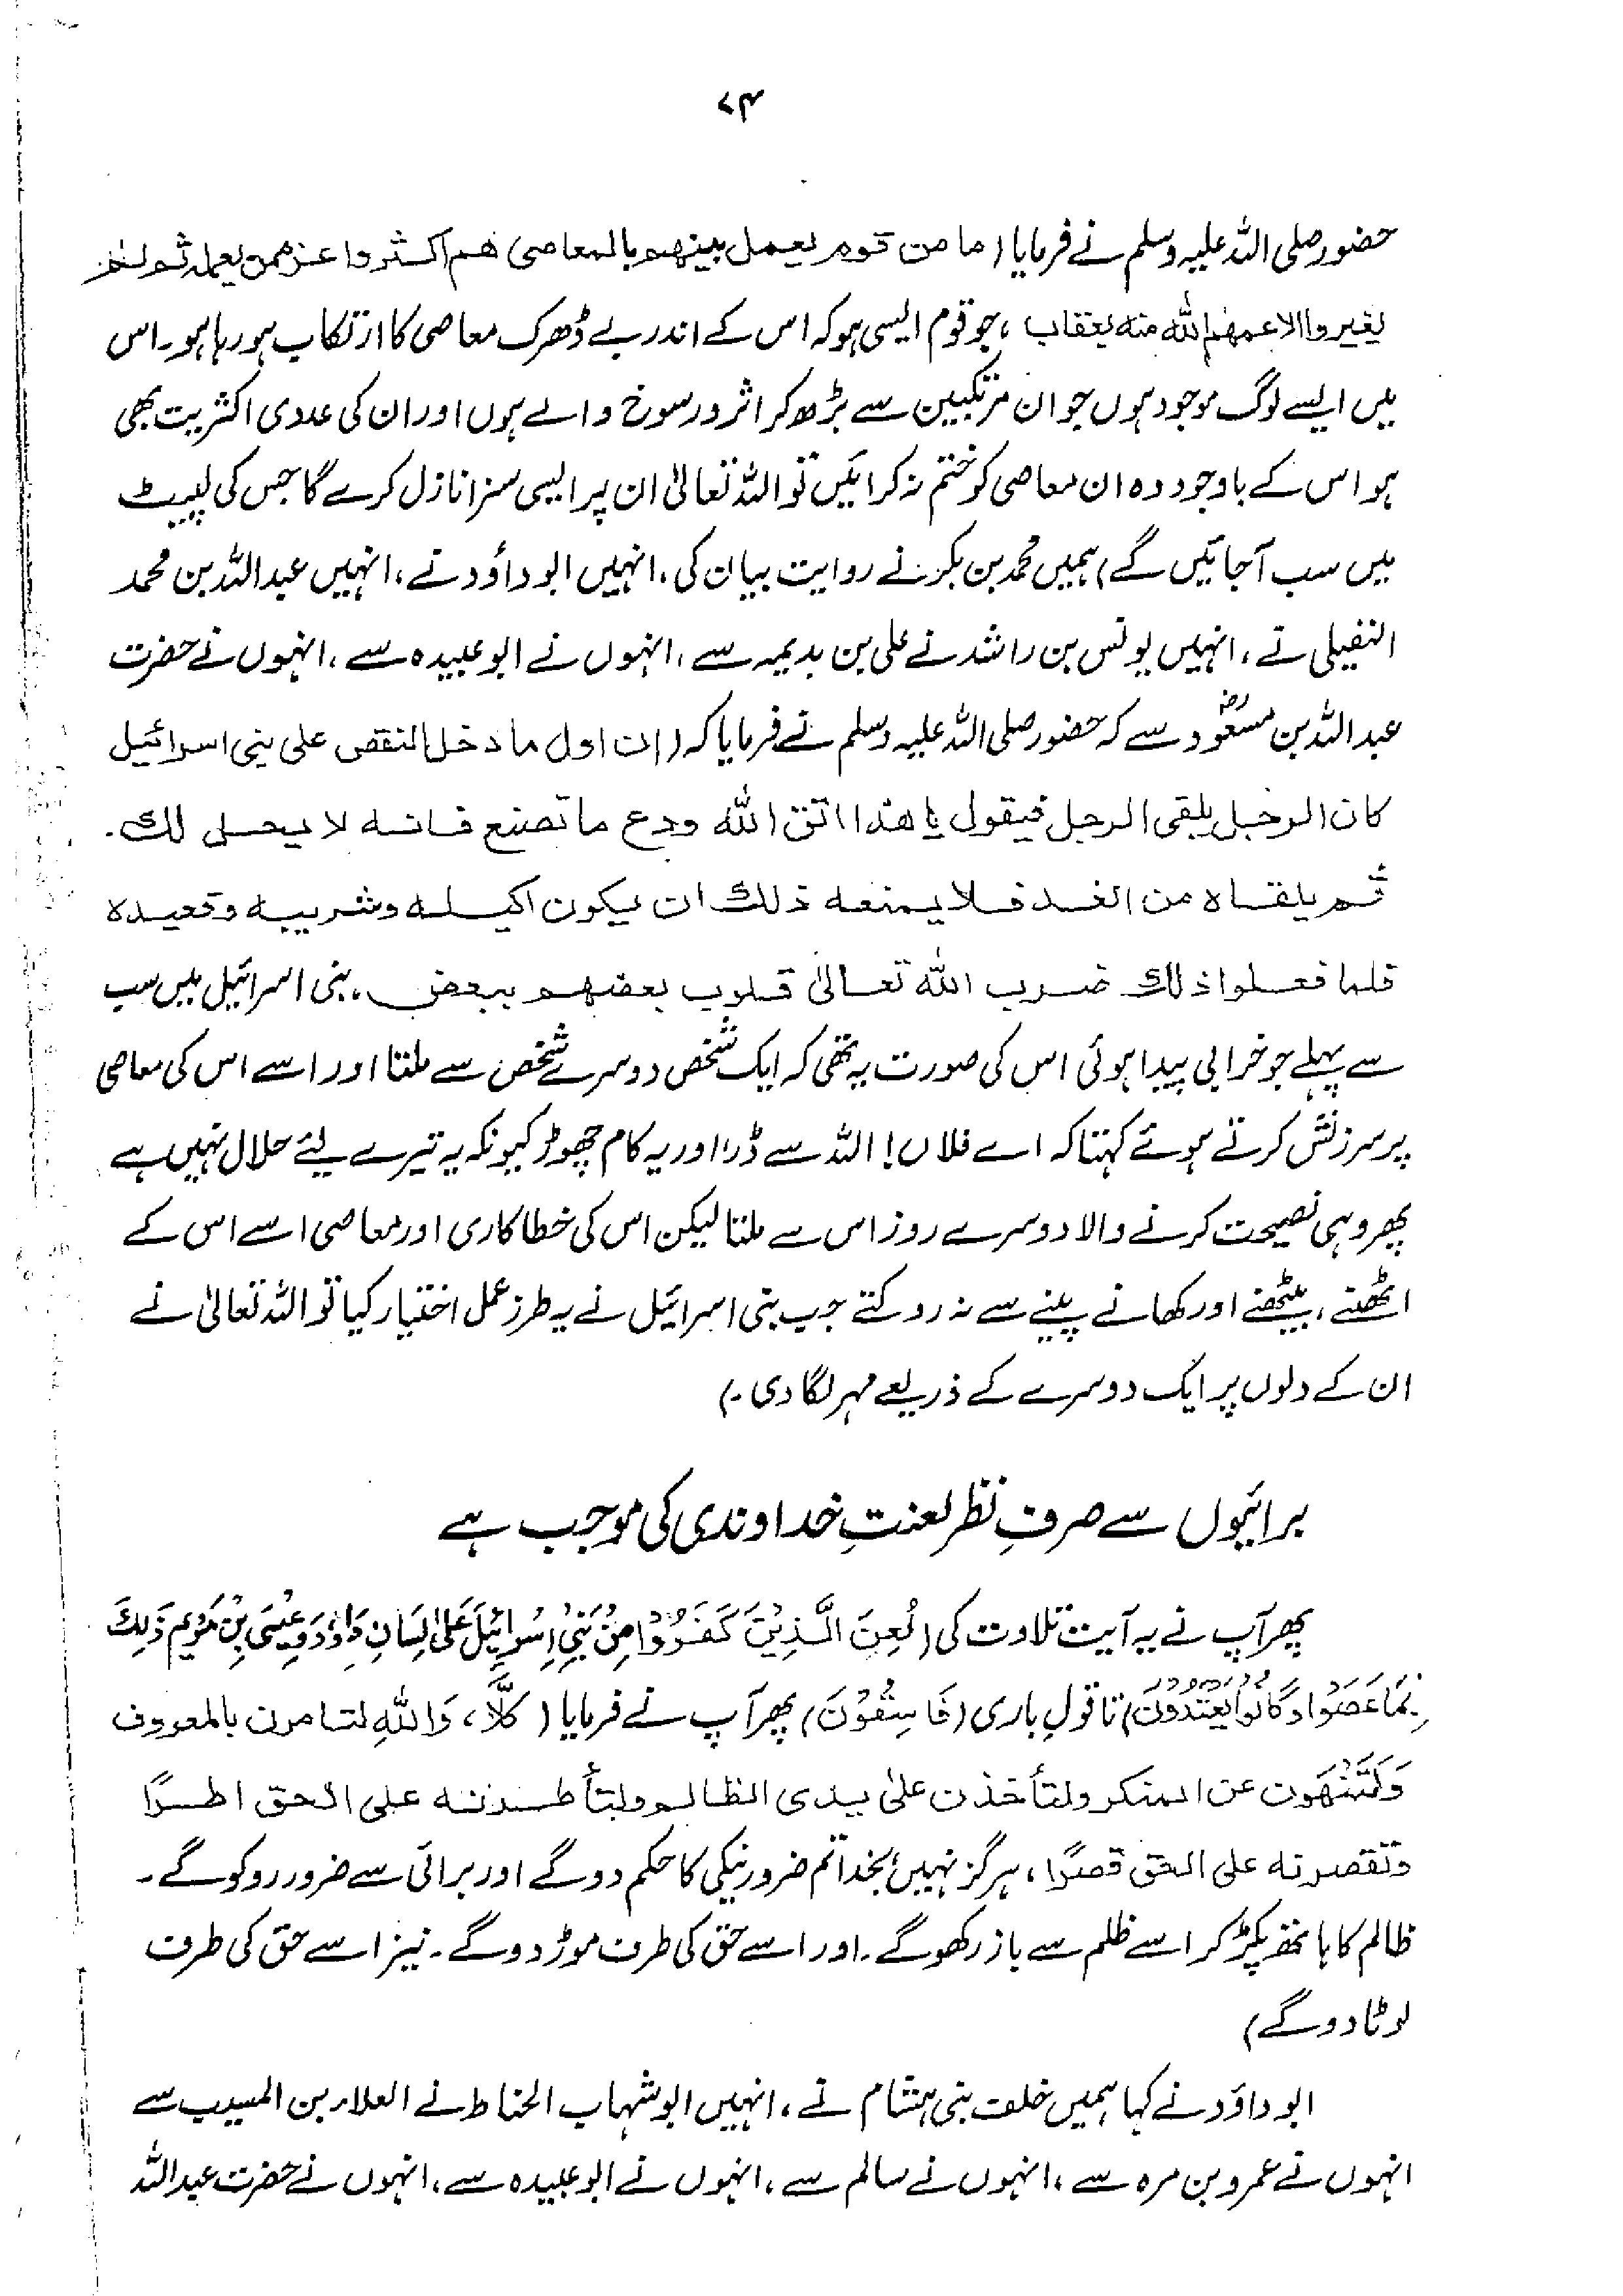 ۷۴
حضور صلی اللہ علیہ وسلم نے فرمایا (ما من قوم یعمل بینھم بالمعاصی ھم اکثر واعز ممن یعملہ ثم لم
یغیروا الا عمھم اللہ منہ بعقاب ، جو قوم ایسی ہو کہ اس کے اندر بے ڈھرک معاصی کا ارتکاب ہو رہا ہو۔ اس
میں ایسے لوگ موجود ہوں جو ان مرتکبین سے بڑھ کر اثر و رسوخ والے ہوں اور ان کی عددی اکثریت بھی
ہو اس کے باوجود وہ ان معاصی کو ختم نہ کرائیں تو اللہ تعالیٰ ان پر ایسی سزا نازل کرے گا جس کی لپیٹ
میں سب آجائیں گے) ہمیں محمد بن بکر نے روایت بیان کی، انہیں ابوداؤد نے، انہیں عبداللہ بن محمد
النفیلی نے، انہیں یونس بن راشد نے علی بن بذیمہ سے، انہوں نے ابوعبیدہ سے، انہوں نے حضرت
عبداللہ بن مسعودؓ سے کہ حضور صلی اللہ علیہ وسلم نے فرمایا کہ (ان اول ما دخل النقص علی بنی اسرائیل
کان الرجل یلقی الرجل فیقول یا ھذا اتق اللہ ودع ما تصنع فانہ لا یحل لک۔
ثم یلقاہ من الغد فلا یمنعہ ذلک ان یکون اکیلہ وشریبہ وقعیدہ
فلما فعلوا ذلک ضرب اللہ تعالیٰ قلوب بعضھم ببعض ، بنی اسرائیل میں سب
سے پہلے جو خرابی پیدا ہوئی اس کی صورت یہ تھی کہ ایک شخص دوسرے شخص سے ملتا اور اسے اس کی معاصی
پر سرزنش کرتے ہوئے کہتا کہ اے فلاں! اللہ سے ڈر! اور یہ کام چھوڑ کیونکہ یہ تیرے لیے حلال نہیں ہے
پھر وہی نصیحت کرنے والا دوسرے روز اس سے ملتا لیکن اس کی خطا کاری اور معاصی اسے اس کے
اٹھنے، بیٹھنے اور کھانے پینے سے نہ روکتے جب بنی اسرائیل نے یہ طرز عمل اختیار کیا تو اللہ تعالیٰ نے
ان کے دلوں پر ایک دوسرے کے ذریعے مہر لگا دی۔)
برائیوں سے صرفِ نظر لعنتِ خداوندی کی موجب ہے
پھر آپ نے یہ آیت تلاوت کی (لُعِنَ الَّذِیْنَ کَفَرُوْا مِنْ بَنِیْ اِسْرَائِیْلَ عَلٰی لِسَانِ دَاوٗدَ وَعِیْسَی بْنِ مَرْیَمَ ذٰلِکَ
بِمَا عَصَوْا وَکَانُوْا یَعْتَدُوْنَ) تا قول باری (فَاسِقُوْنَ) پھر آپ نے فرمایا (کَلَّا، وَاللّٰہِ لتامرن بالمعروف
وَلَتَنْهَون عن المنکر ولتأخذن علیٰ یدی الظالم ولتأطرنہ علی الحق اطرًا
وتقصرنہ علی الحق قصرًا ، ہرگز نہیں، بخدا تم ضرور نیکی کا حکم دو گے اور برائی سے ضرور روکو گے۔
ظالم کا ہاتھ پکڑ کر اسے ظلم سے باز رکھو گے۔ اور اسے حق کی طرف موڑ دو گے۔ نیز اسے حق کی طرف
لوٹا دو گے)
ابوداؤد نے کہا ہمیں خلف بنی ہشام نے، انہیں ابوشہاب الحناط نے العلاء بن المسیب سے
انہوں نے عمرو بن مرہ سے، انہوں نے سالم سے، انہوں نے ابوعبیدہ سے، انہوں نے حضرت عبداللہ